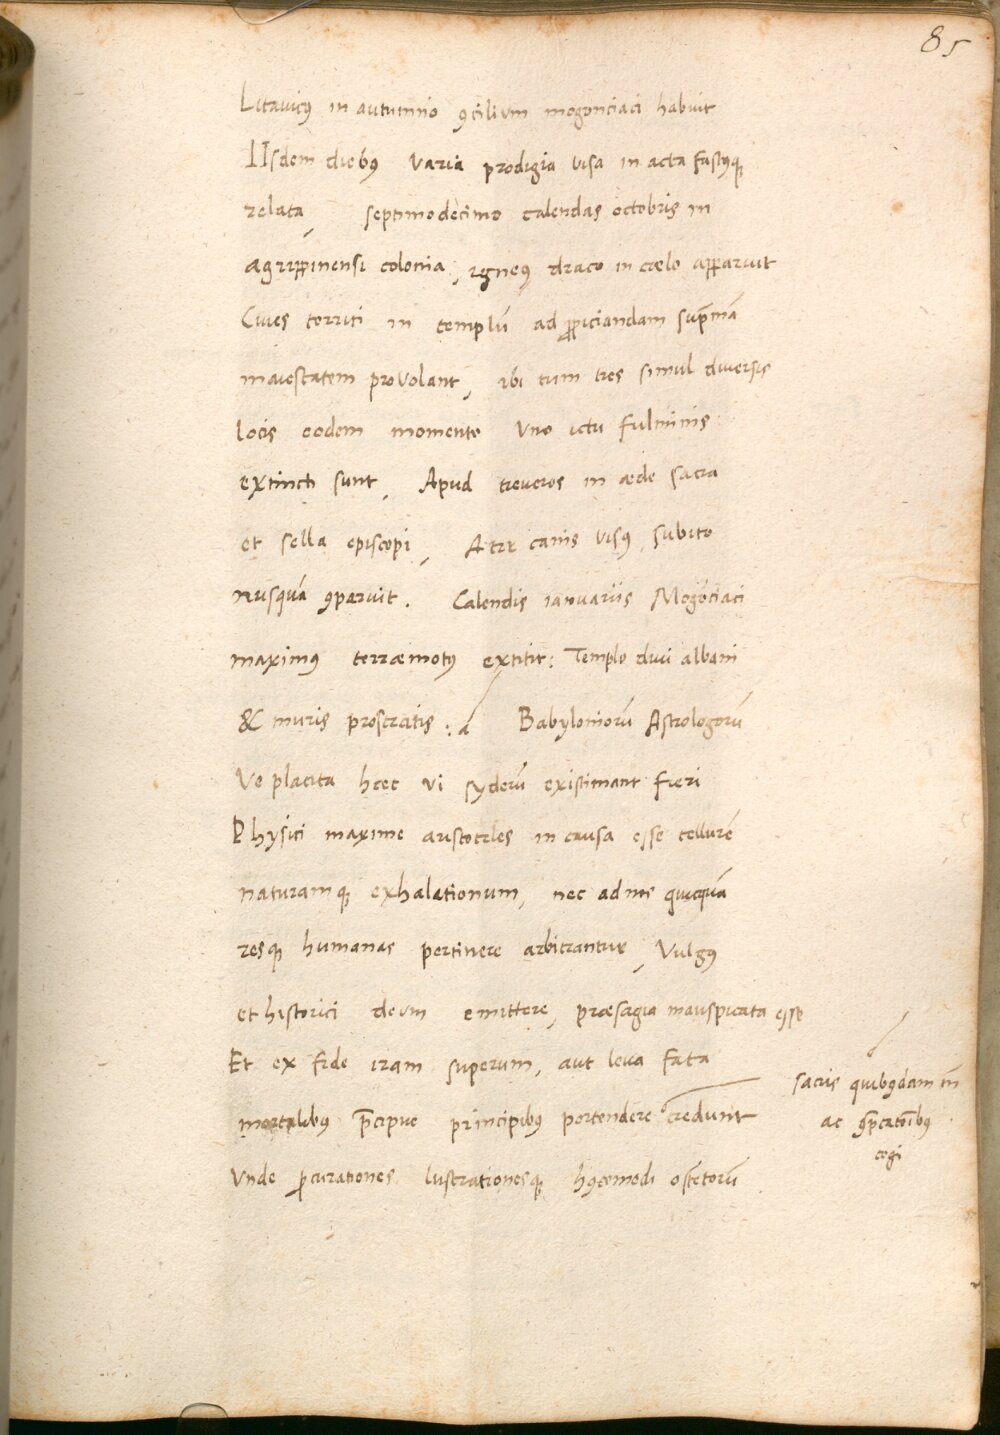 85
Litavicꝰ in autumno ꝯcilium mogonciaci habuit
IIsdem diebꝰ varia prodigia visa in acta fastꝰqꝫ
relata, septimodecimo calendas octobris in
agrippinensi colonia, igneꝰ draco in cælo apparuit
Cives territi in templū ad ꝓpiciandam sup̄mā
maiestatem provolant, ibi tum tres simul diversis
locis eodem momento Uno ictu fulminis
extincti sunt, Apud treveros in æde sacra
et sella episcopi, Ater canis visꝰ subito
nusquā ꝯparuit. Calendis ianuariis Mogōciaci
maximꝰ terræmotꝰ extitit: Templo divi albani
& muris prostratis: a Babyloniorū Astrologorū
Ve placita hæc vi syderū existimant fieri
Physici maxime aristoteles in causa esse tellurē
naturamqꝫ exhalationum, nec ad nos quicquā
resqꝫ humanas pertinere arbitrantur, Vulgꝰ
et historici deum emittere, præsagia inauspicata esse
Et ex fide iram superum, aut leva fata
mortalibꝰ p̄cipue principibꝰ portendere credunt
sacris quibꝰdam
ac
cogi
Unde ꝓcurationes lustrationesqꝫ hꝰcemodi ostētorū